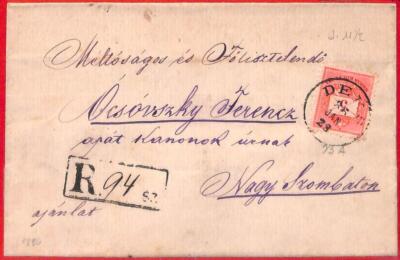 Méltóságos és Főtisztelendő
Ocsóvszky Ferencz
apát kanonok úrnak
Nagy Szombaton
R 94 sz.
ajánlat
JAN
23